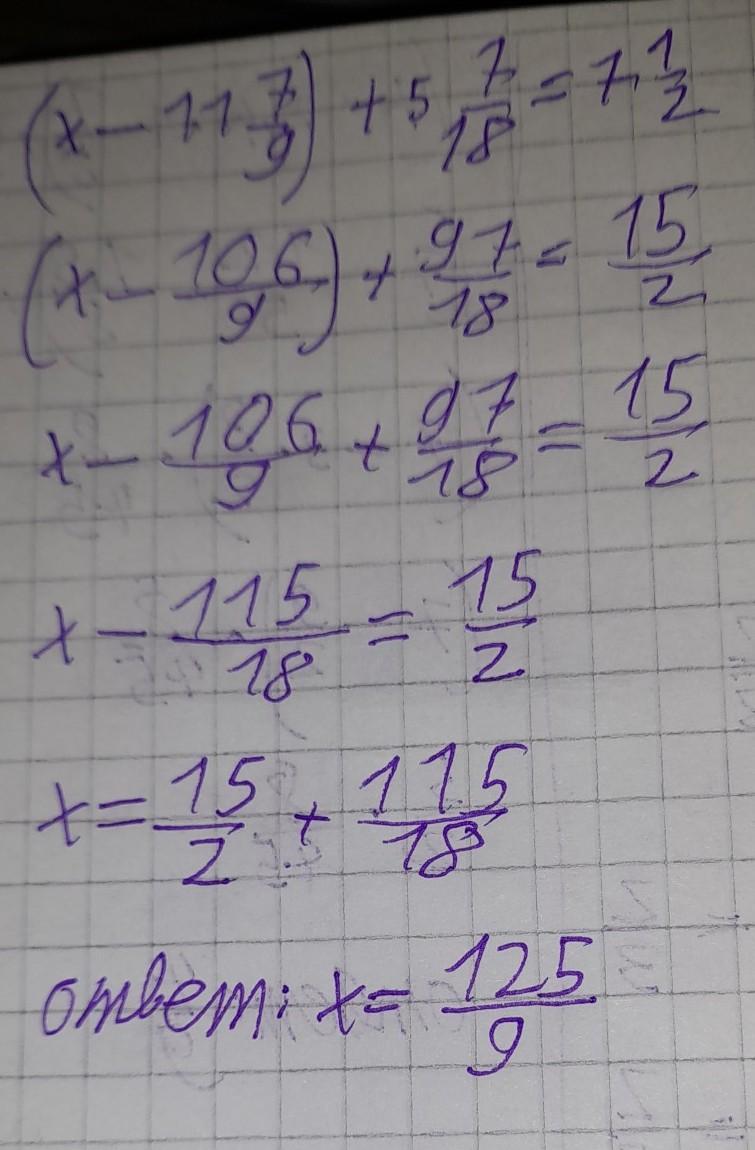 (x - 11 7/9) + 5 7/18 = 7 1/2
(x - 106/9) + 97/18 = 15/2
x - 106/9 + 97/18 = 15/2
x - 115/18 = 15/2
x = 15/2 + 115/18
ответ: x = 125/9